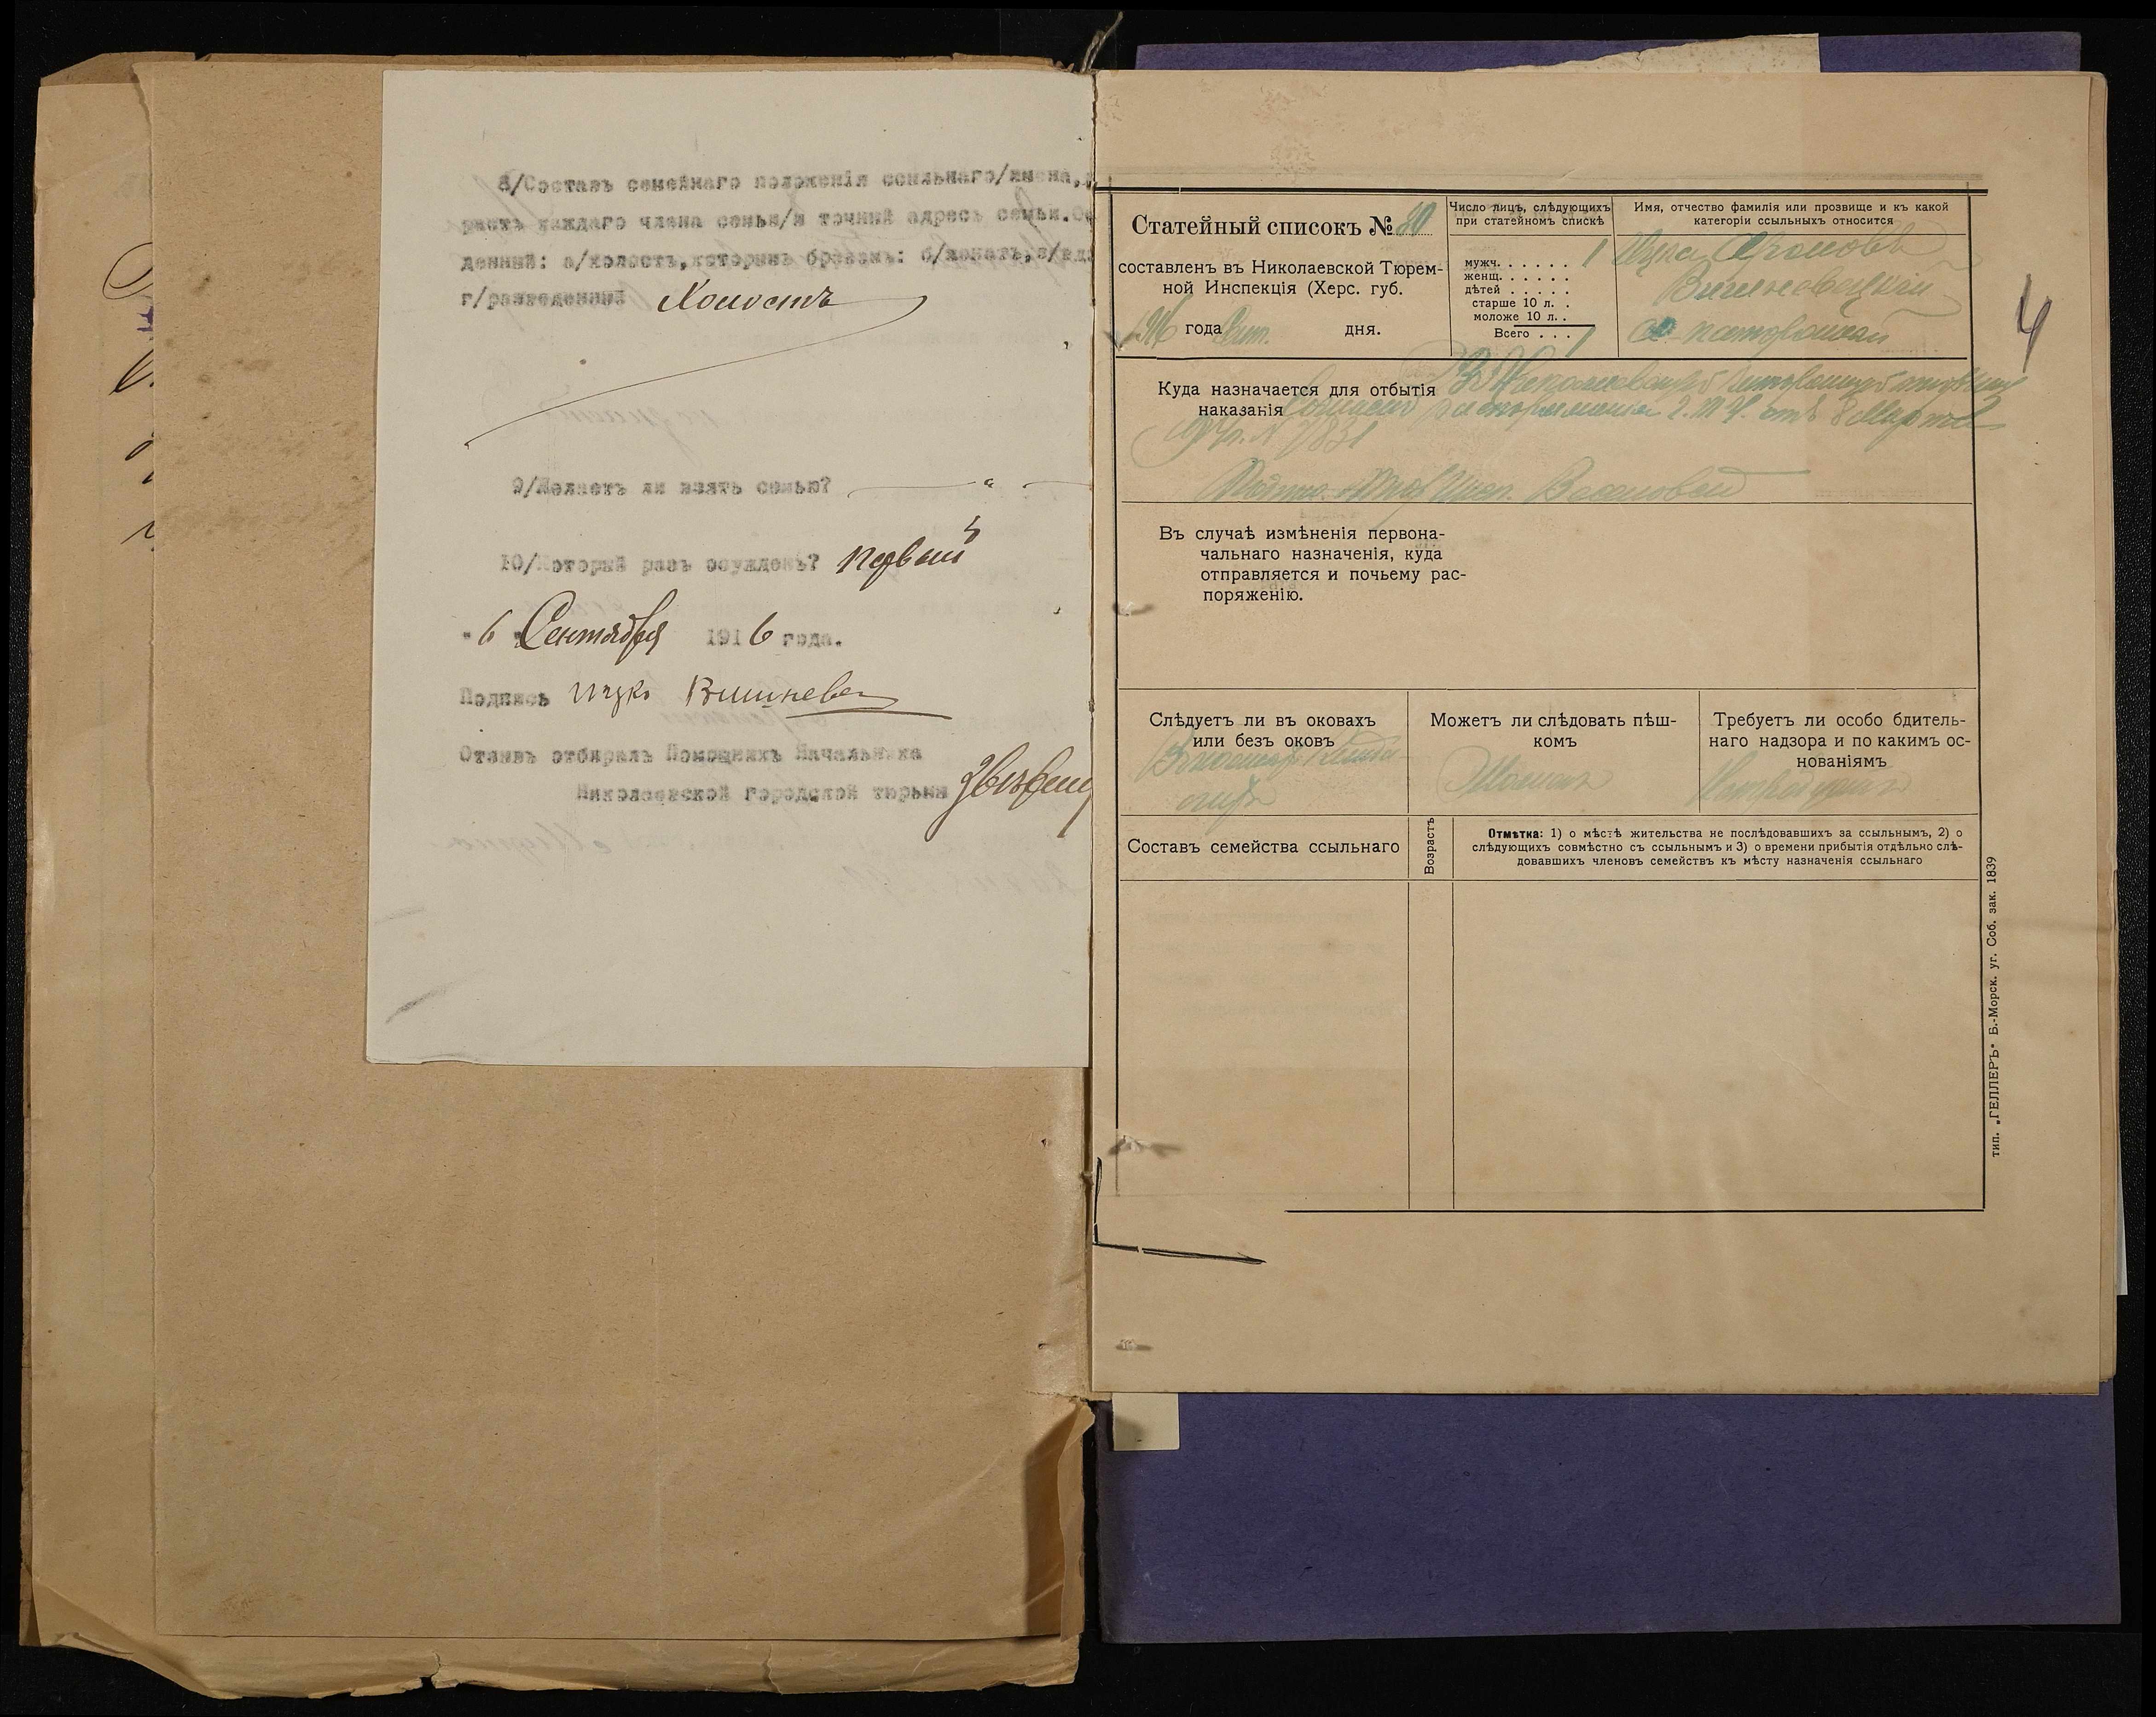 8/Составъ семейнаго положенія ссыльнаго/имена,
растъ каждаго члена семьи/и точный адресъ семьи.
денный: а/холостъ,которымъ бракомъ: б/женатъ,в/вдо
г/разведенный Холостъ
9/Желаетъ ли взять семью? — " —
10/Который разъ осужденъ? первый
"6" Сентября 1916 года.
Подпись Ицко Вишневе
Отзывъ отбиралъ Помощникъ Начальника
Николаевской городской тюрьмы
4
Статейный списокъ № 20
составленъ въ Николаевской Тюрем-
ной Инспекціи (Херс. губ.
1916 года Сент. дня.
Число лицъ, слѣдующихъ
при статейномъ спискѣ
мужч. . . . . . 1
женщ. . . . . .
дѣтей . . . . .
старше 10 л. .
моложе 10 л. .
Всего . . . 1
Имя, отчество фамилія или прозвище и къ какой
категоріи ссыльныхъ относится
Ицка Ароновъ
Вишневецкій
Куда назначается для отбытія
наказанія
Согласно распоряженія Г.Т.У. отъ 8 Марта
№ 7831
Въ случаѣ измѣненія первона-
чальнаго назначенія, куда
отправляется и почьему рас-
поряженію.
Слѣдуетъ ли въ оковахъ
или безъ оковъ
Можетъ ли слѣдовать пѣш-
комъ
Можетъ
Требуетъ ли особо бдитель-
наго надзора и по какимъ ос-
нованіямъ
Составъ семейства ссыльнаго
Возрастъ
Отмѣтка: 1) о мѣстѣ жительства не послѣдовавшихъ за ссыльнымъ, 2) о
слѣдующихъ совмѣстно съ ссыльнымъ и 3) о времени прибытія отдѣльно слѣ-
довавшихъ членовъ семействъ къ мѣсту назначенія ссыльнаго
тип. „ГЕЛЛЕРЪ" Б.-Морск. уг. Соб. зак. 1839